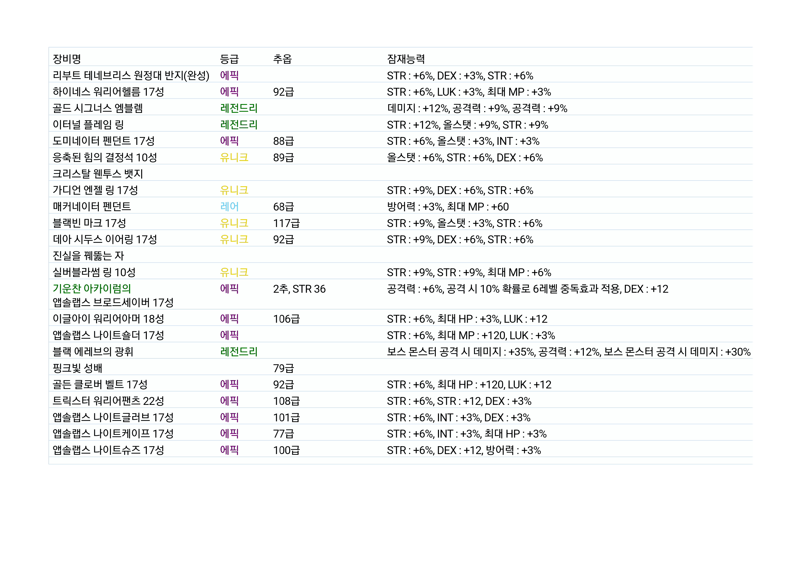 장비명 등급 추옵 잠재능력
리부트 테네브리스 원정대 반지(완성) 에픽 STR : +6%, DEX : +3%, STR : +6%
하이네스 워리어헬름 17성 에픽 92급 STR : +6%, LUK : +3%, 최대 MP : +3%
골드 시그너스 엠블렘 레전드리 데미지 : +12%, 공격력 : +9%, 공격력 : +9%
이터널 플레임 링 레전드리 STR : +12%, 올스탯 : +9%, STR : +9%
도미네이터 펜던트 17성 에픽 88급 STR : +6%, 올스탯 : +3%, INT : +3%
응축된 힘의 결정석 10성 유니크 89급 올스탯 : +6%, STR : +6%, DEX : +6%
크리스탈 웬투스 뱃지
가디언 엔젤 링 17성 유니크 STR : +9%, DEX : +6%, STR : +6%
매커네이터 펜던트 레어 68급 방어력 : +3%, 최대 MP : +60
블랙빈 마크 17성 유니크 117급 STR : +9%, 올스탯 : +3%, STR : +6%
데아 시두스 이어링 17성 유니크 92급 STR : +9%, DEX : +6%, STR : +6%
진실을 꿰뚫는 자
실버블라썸 링 10성 유니크 STR : +9%, STR : +9%, 최대 MP : +6%
기운찬 아카이럼의 에픽 2추, STR 36 공격력 : +6%, 공격 시 10% 확률로 6레벨 중독효과 적용, DEX : +12
앱솔랩스 브로드세이버 17성
이글아이 워리어아머 18성 에픽 106급 STR : +6%, 최대 HP : +3%, LUK : +12
앱솔랩스 나이트숄더 17성 에픽 STR : +6%, 최대 MP : +120, LUK : +3%
블랙 에레브의 광휘 레전드리 보스 몬스터 공격 시 데미지 : +35%, 공격력 : +12%, 보스 몬스터 공격 시 데미지 : +30%
핑크빛 성배 79급
골든 클로버 벨트 17성 에픽 92급 STR : +6%, 최대 HP : +120, LUK : +12
트릭스터 워리어팬츠 22성 에픽 108급 STR : +6%, STR : +12, DEX : +3%
앱솔랩스 나이트글러브 17성 에픽 101급 STR : +6%, INT : +3%, DEX : +3%
앱솔랩스 나이트케이프 17성 에픽 77급 STR : +6%, INT : +3%, 최대 HP : +3%
앱솔랩스 나이트슈즈 17성 에픽 100급 STR : +6%, DEX : +12, 방어력 : +3%